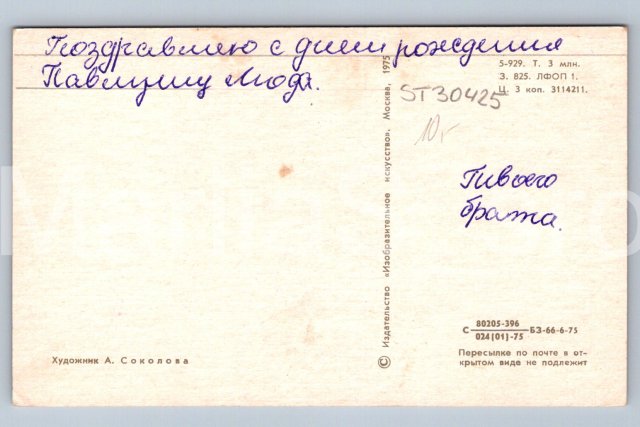 Поздравляю с днем рождения
Павлушу Люда.
5-929. Т. 3 млн.
З. 825. ЛФОП 1.
Ц. 3 коп. 3114211.
ST30425
10г
Твоего
брата.
© Издательство «Изобразительное искусство». Москва, 1975
80205-396
С ――― БЗ-66-6-75
024(01)-75
Художник А. Соколова
Пересылке по почте в от-
крытом виде не подлежит